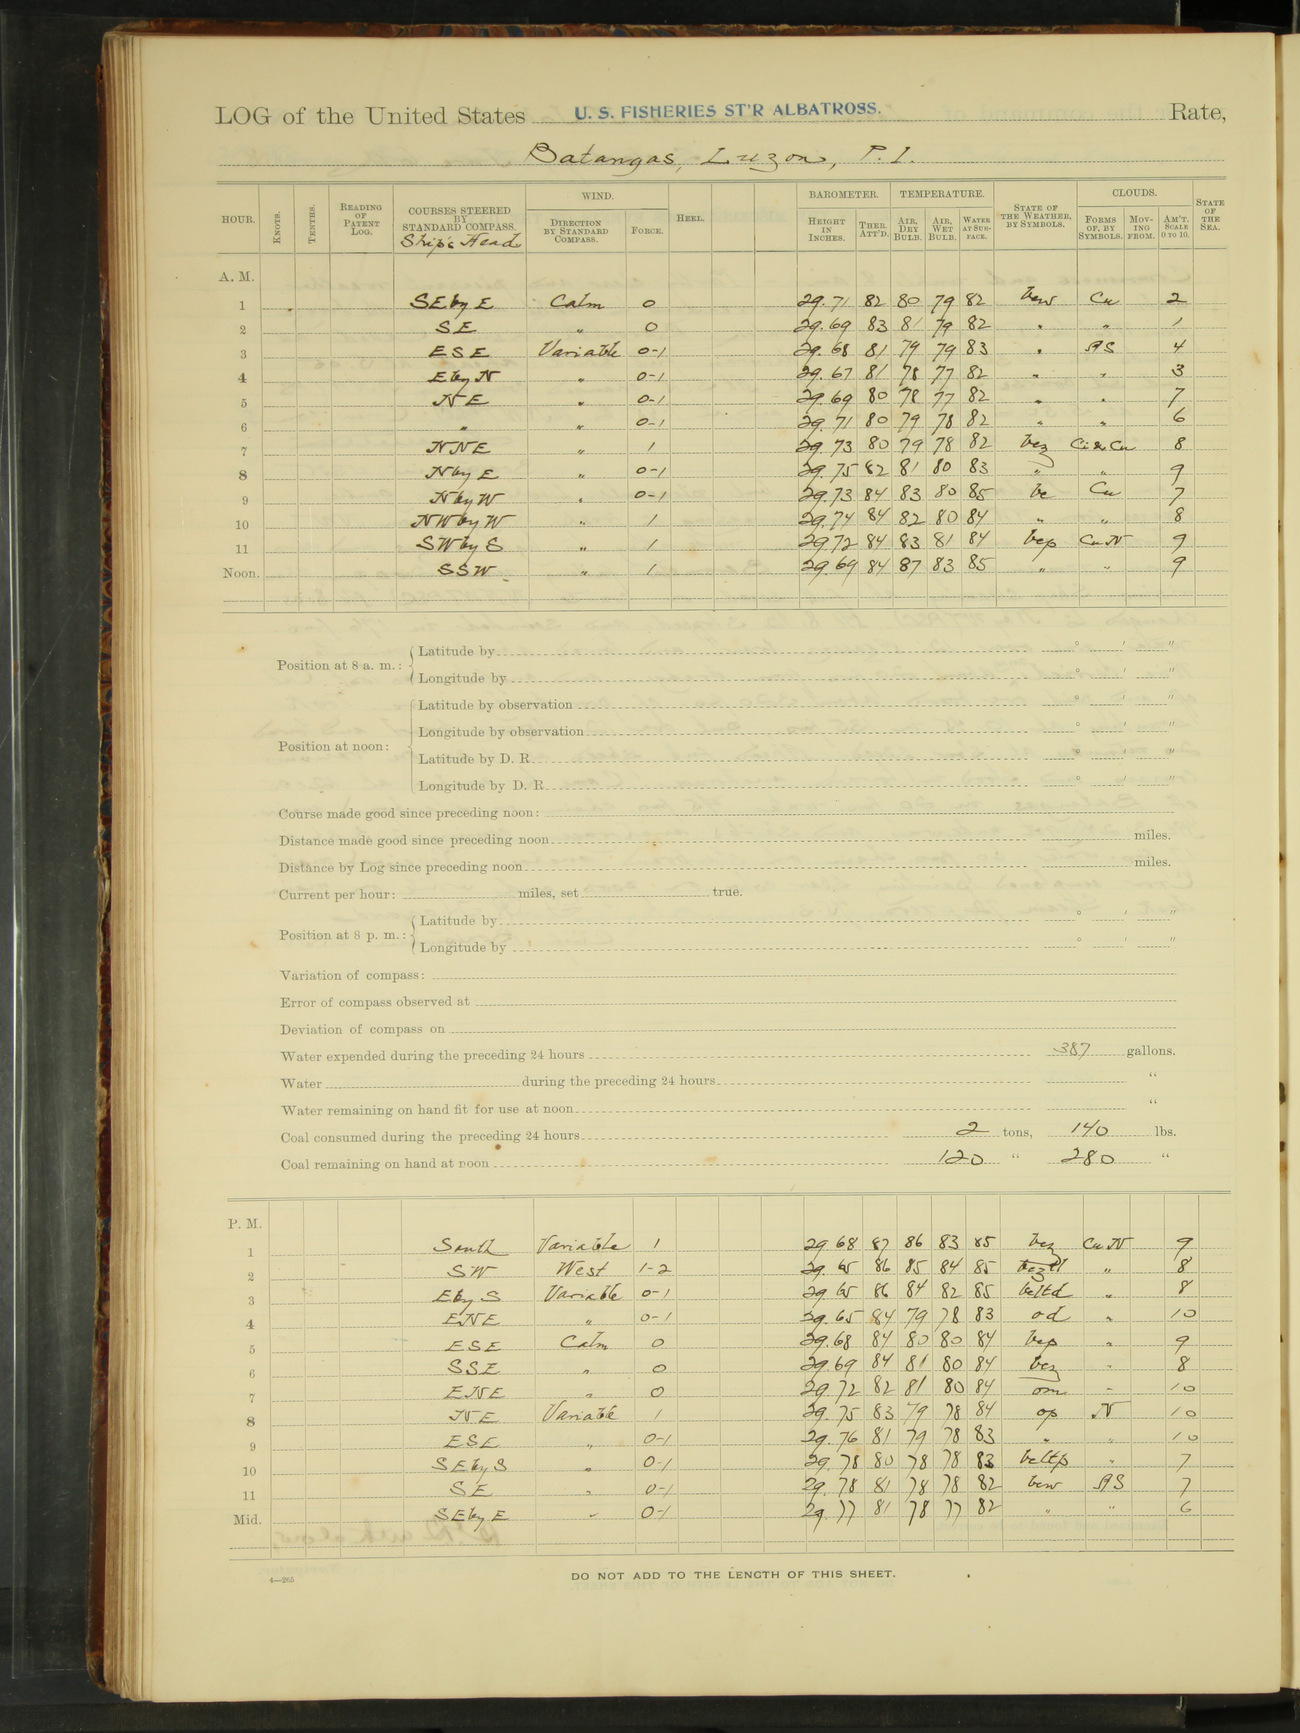 LOG of the United States U. S. FISHERIES ST'R ALBATROSS. Rate,
Batangas, Luzon, P. I.
HOUR. KNOTS. TENTHS. READING OF PATENT LOG. COURSES STEERED BY STANDARD COMPASS. Ship's Head WIND. DIRECTION BY STANDARD COMPASS. FORCE. HEEL. BAROMETER. HEIGHT IN INCHES. THER. ATT'D. TEMPERATURE. AIR, DRY BULB. AIR, WET BULB. WATER AT SURFACE. STATE OF THE WEATHER, BY SYMBOLS. CLOUDS. FORMS OF, BY SYMBOLS. MOVING FROM. AM'T. SCALE 0 TO 10. STATE OF THE SEA.
A. M.
1 SE by E Calm 0 29.71 82 80 79 82 bcw Cu 2
2 SE " 0 29.69 83 81 79 82 " " 1
3 ESE Variable 0-1 29.68 81 79 79 83 " AS 4
4 E by N " 0-1 29.67 81 78 77 82 " " 3
5 NE " 0-1 29.69 80 78 77 82 " " 7
6 " " 0-1 29.71 80 79 78 82 " " 6
7 NNE " 1 29.73 80 79 78 82 bcz Ci & Cu 8
8 N by E " 0-1 29.75 82 81 80 83 " " 9
9 N by W " 0-1 29.73 84 83 80 85 bc Cu 7
10 NW by W " 1 29.74 84 82 80 84 " " 8
11 SW by S " 1 29.72 84 83 81 84 bcp Cu N 9
Noon. SSW " 1 29.69 84 87 83 85 " " 9
Position at 8 a. m.: Latitude by ° ′ ″
Longitude by ° ′ ″
Latitude by observation ° ′ ″
Longitude by observation ° ′ ″
Position at noon:
Latitude by D. R. ° ′ ″
Longitude by D. R. ° ′ ″
Course made good since preceding noon:
Distance made good since preceding noon miles.
Distance by Log since preceding noon miles.
Current per hour: miles, set true.
Position at 8 p. m.: Latitude by ° ′ ″
Longitude by ° ′ ″
Variation of compass:
Error of compass observed at
Deviation of compass on
Water expended during the preceding 24 hours 387 gallons.
Water during the preceding 24 hours "
Water remaining on hand fit for use at noon "
Coal consumed during the preceding 24 hours 2 tons, 140 lbs.
Coal remaining on hand at noon 120 " 280 "
P. M.
1 South Variable 1 29.68 87 86 83 85 bcz Cu N 9
2 SW West 1-2 29.65 86 85 84 85 bcztl " 8
3 E by S Variable 0-1 29.65 86 84 82 85 bcltd " 8
4 ENE " 0-1 29.65 84 79 78 83 od " 10
5 ESE Calm 0 29.68 84 80 80 84 bcp " 9
6 SSE " 0 29.69 84 81 80 84 bcz " 8
7 ENE " 0 29.72 82 81 80 84 om " 10
8 NE Variable 1 29.75 83 79 78 84 op N 10
9 ESE " 0-1 29.76 81 79 78 83 " " 10
10 SE by S " 0-1 29.78 80 78 78 83 bcltp " 7
11 SE " 0-1 29.78 81 78 78 82 bcw AS 7
Mid. SE by E " 0-1 29.77 81 78 77 82 " " 6
4—265
DO NOT ADD TO THE LENGTH OF THIS SHEET.